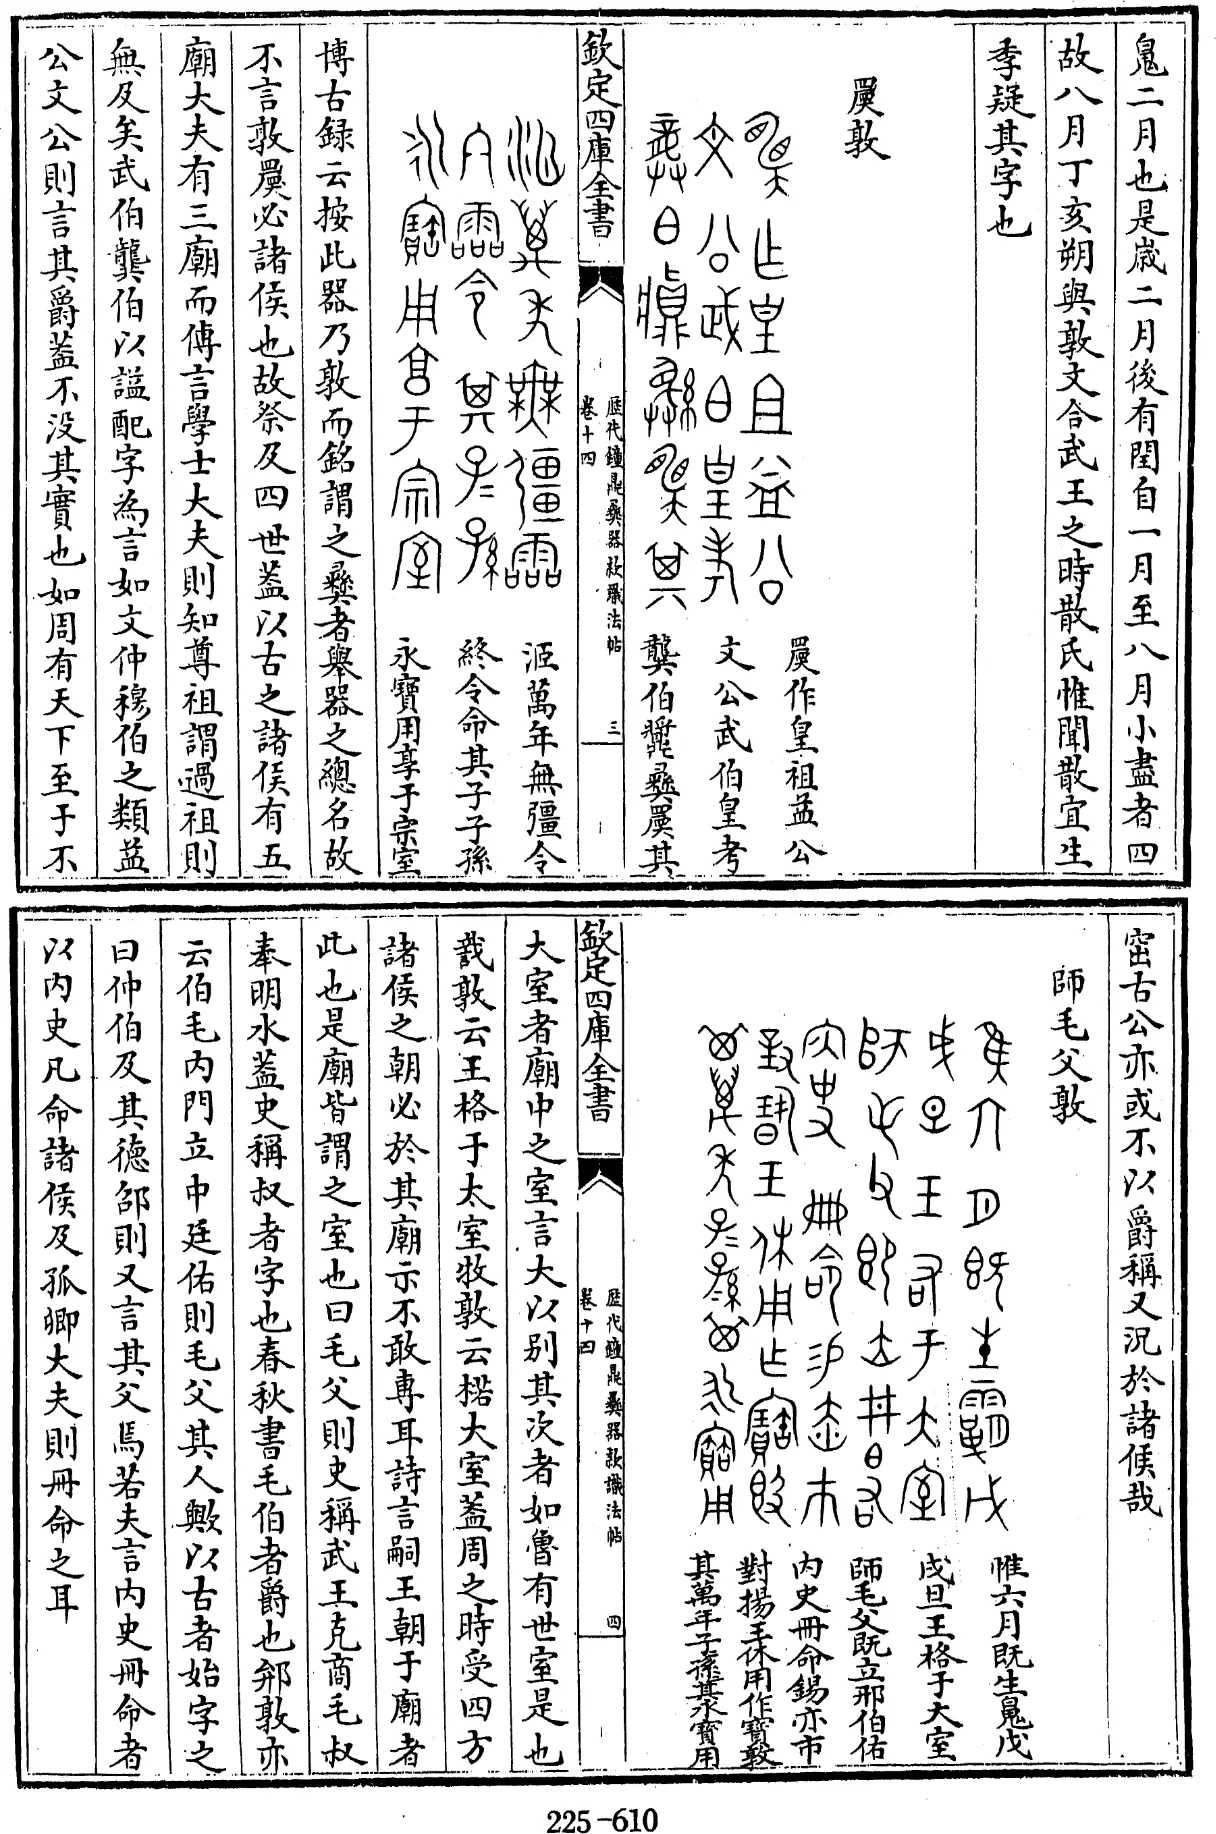 鬼二月也是歲二月後有閏自一月至八月小盡者四
故八月丁亥朔與敦文合武王之時散氏惟聞散宜生
季疑其字也
㠱敦
㠱作皇祖益公
文公武伯皇考
龔伯彝㠱其
洍萬年無彊令
終令命其子子孫
永寶用享于宗室
欽定四庫全書
歷代鐘鼎彝器款識法帖
卷十四
三
博古録云按此器乃敦而銘謂之彝者舉器之總名故
不言敦㠱必諸侯也故祭及四世蓋以古之諸侯有五
廟大夫有三廟而傳言學士大夫則知尊祖謂過祖則
無及矣武伯龔伯以謚配字為言如文仲穆伯之類益
公文公則言其爵蓋不没其實也如周有天下至于不
窋古公亦或不以爵稱又況於諸侯哉
師毛父敦
惟六月既生鬼戊
戌旦王格于大室
師毛父既立邢伯佑
内史冊命錫赤市
對揚王休用作寶敦
其萬年子孫其永寶用
欽定四庫全書
歷代鐘鼎彝器款識法帖
卷十四
四
大室者廟中之室言大以别其次者如魯有世室是也
敦云王格于太室牧敦云格大室蓋周之時受四方
諸侯之朝必於其廟示不敢專耳詩言嗣王朝于廟者
此也是廟皆謂之室也曰毛父則史稱武王克商毛叔
奉明水蓋史稱叔者字也春秋書毛伯者爵也郱敦亦
云伯毛内門立中廷佑則毛父其人歟以古者始字之
曰仲伯及其德邵則又言其父焉若夫言内史冊命者
以内史凡命諸侯及孤卿大夫則冊命之耳
225-610